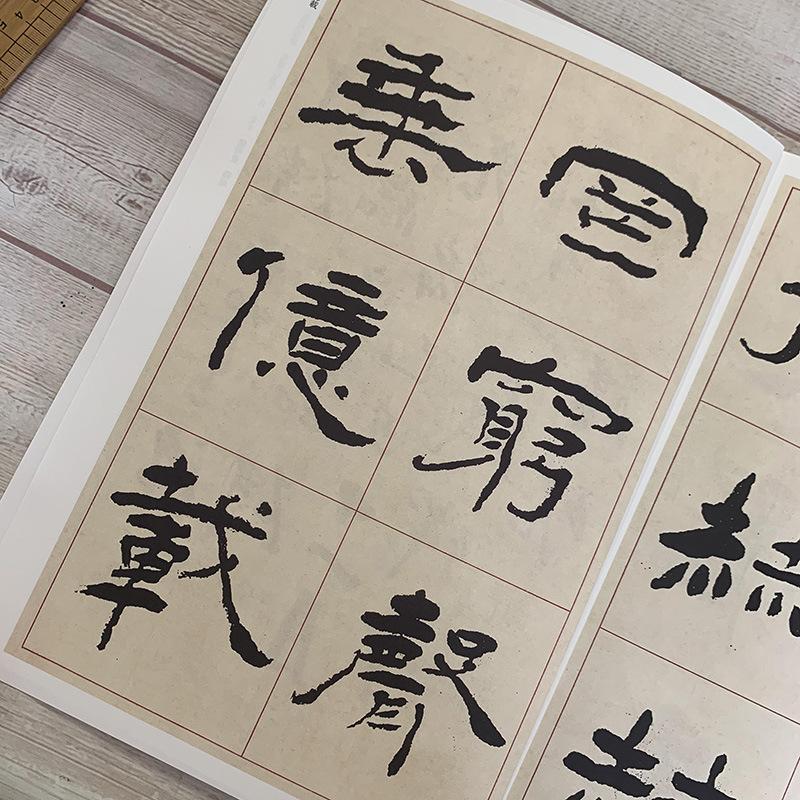 罔窮聲
垂億載